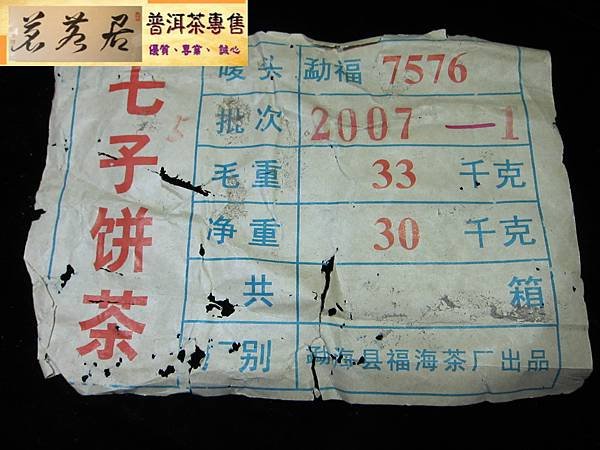 茗茗居
普洱茶專售
優質、專富、誠心
七子饼茶
唛头 勐福 7576
批次 2007 —1
毛重 33 千克
净重 30 千克
共 箱
厂别 勐海县福海茶厂出品